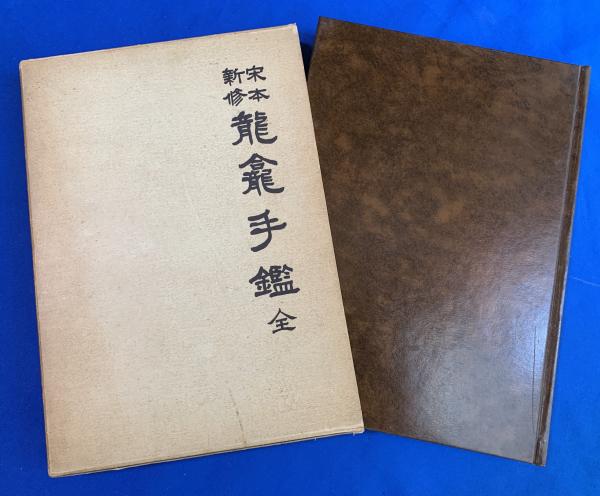 宋本
新修
龍龕手鑑 全